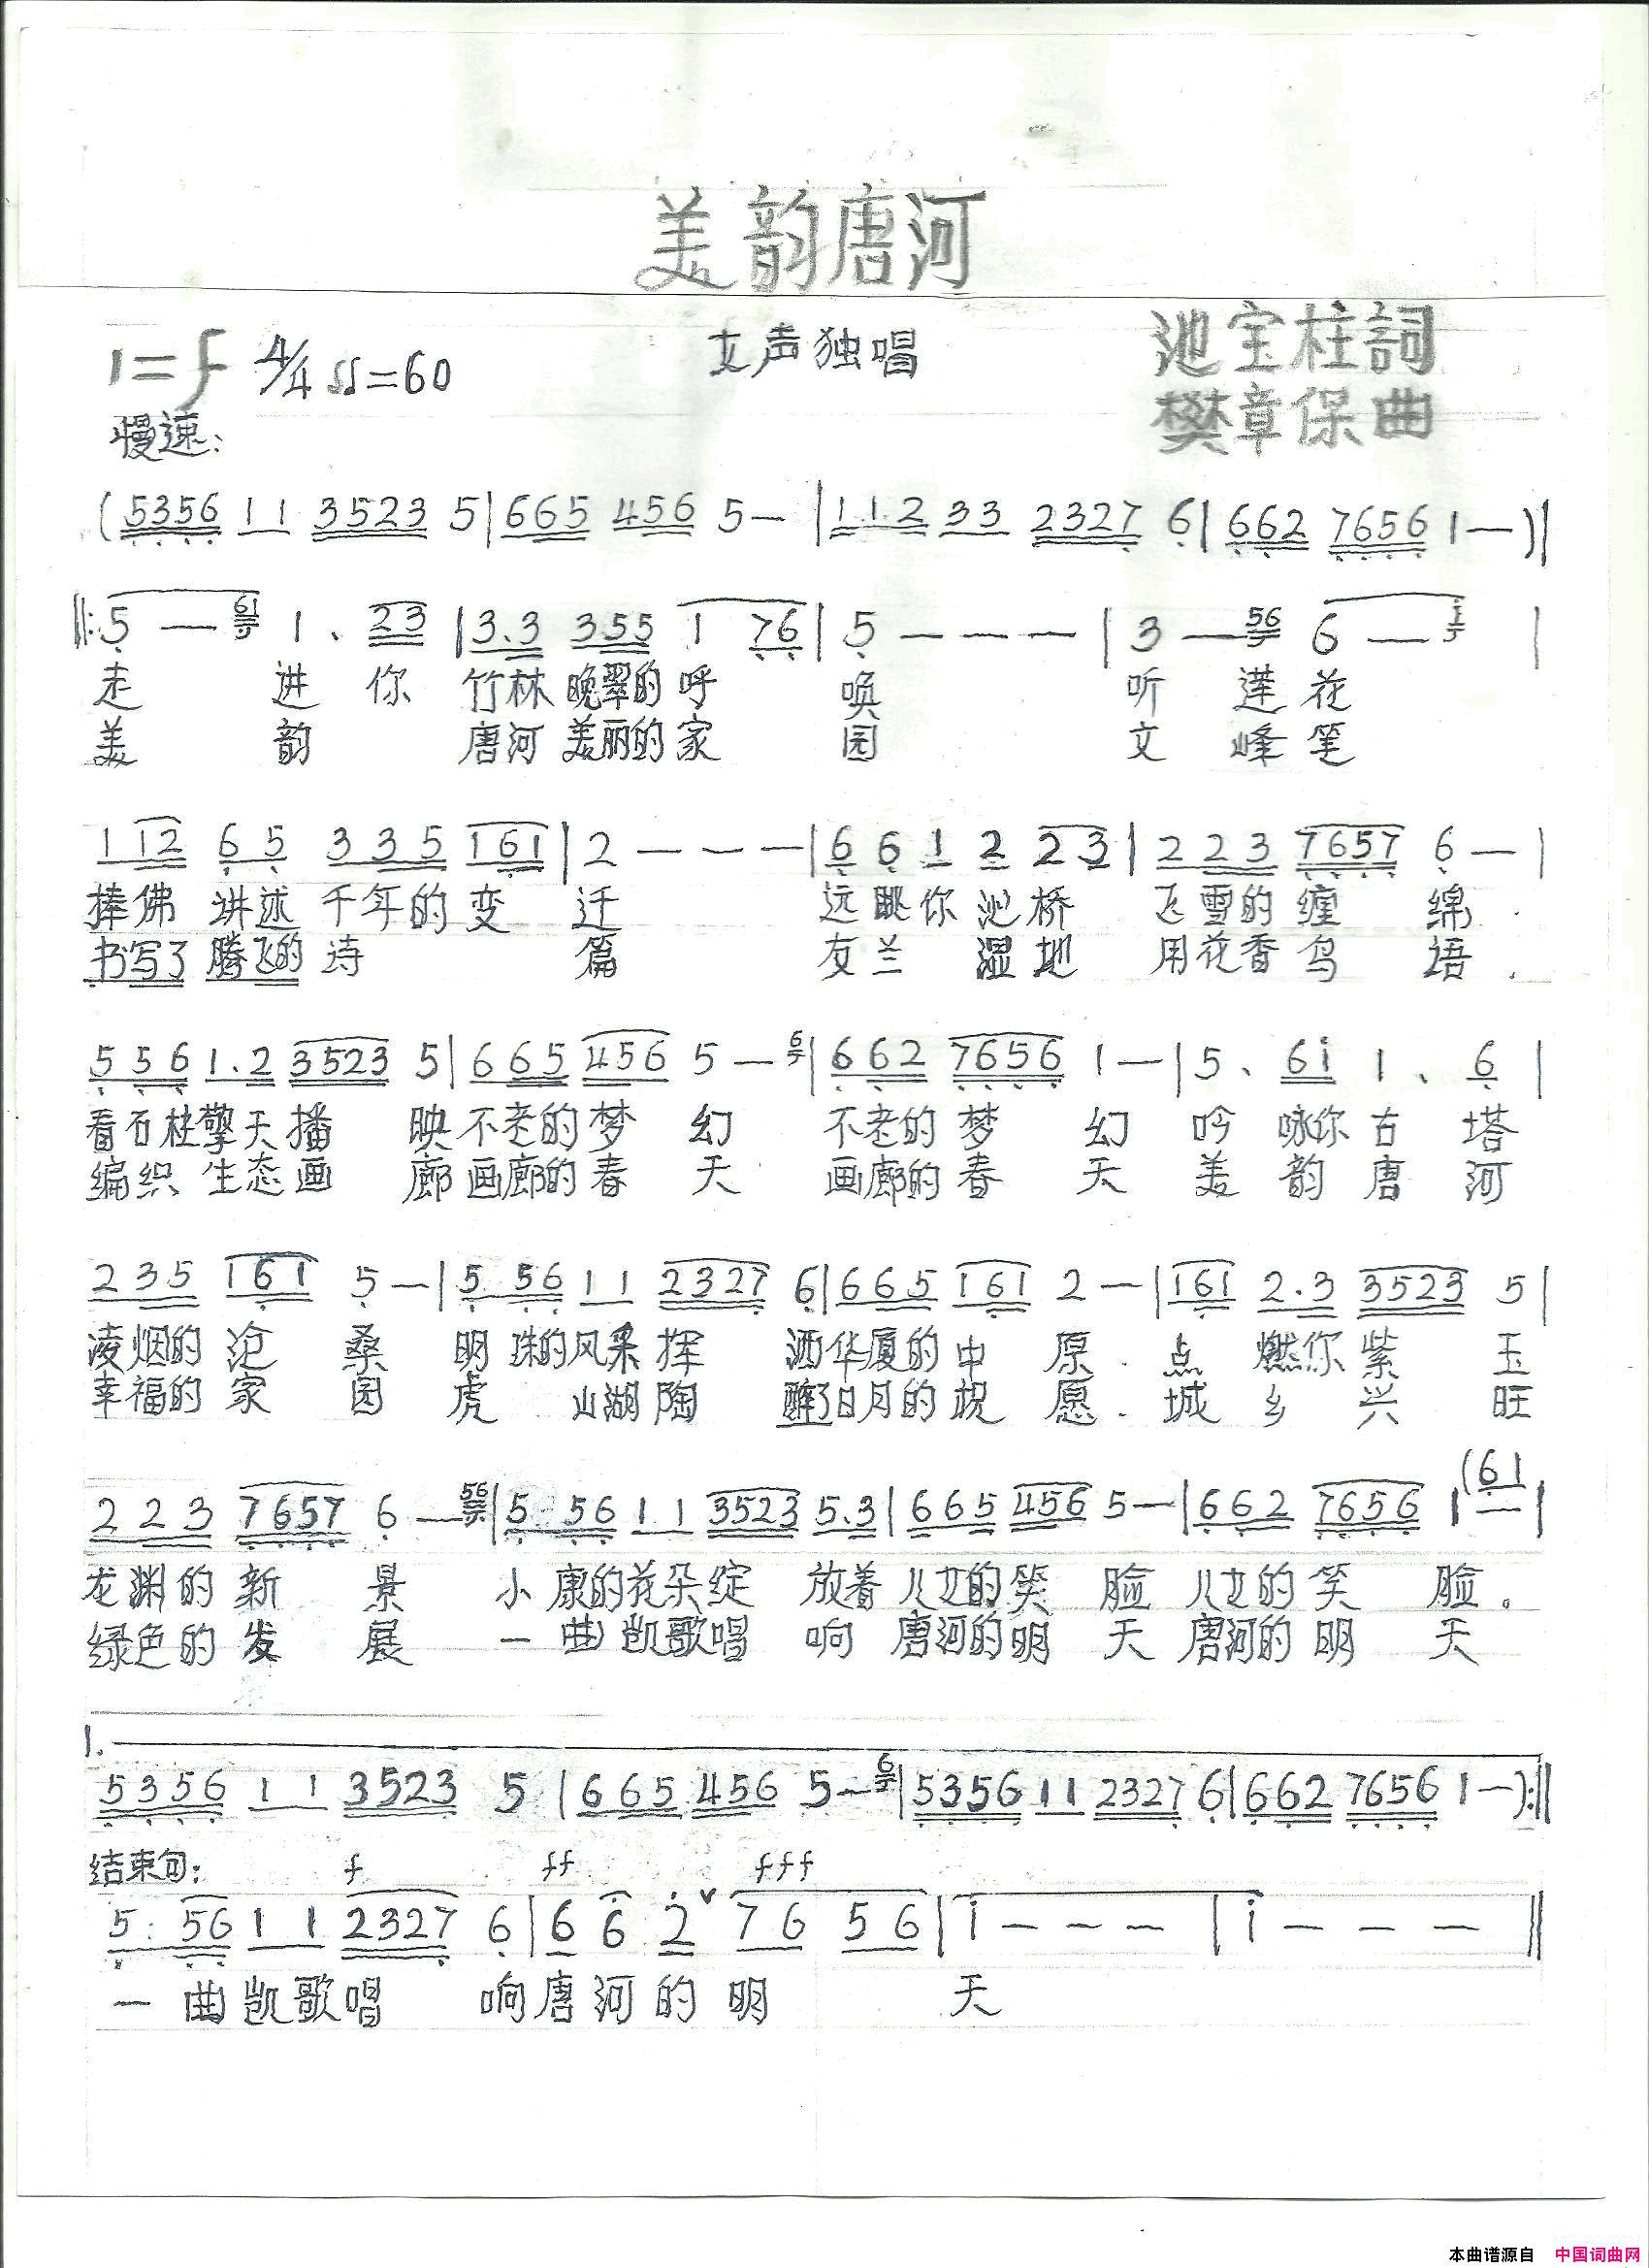 美韵唐河
1=F 4/4 ♩♩=60 女声独唱 池宝柱詞
樊章保曲
慢速:
(5356 11 3523 5|665 456 5—|1.12 33 2327 6|662 7656 1—)|
||:5—61 1、23|3.3 355 1 76|5———|3—56 6—i|
走进你竹林晚翠的呼唤 听莲花
美韵唐河美丽的家园 文峰笔
112 65 335 161|2———|66122 23|223 7657 6—|
捧佛讲述千年的变迁 远眺你沁桥飞雪的缠绵.
书写了腾飞的诗篇 友兰湿地用花香鸟语.
556 1.2 3523 5|665 456 5—6|662 7656 1—|5、6i 1、6|
看石柱擎天播映不老的梦幻 不老的梦幻 吟咏你古塔
编织生态画廊画廊的春天 画廊的春天 美韵唐河
235 161 5—|5. 56 11 2327 6|665 161 2—|161 2.3 3523 5|
凌烟的沧桑 明珠的风采挥洒华厦的中原.点燃你紫玉
幸福的家园 虎山湖陶醉了日月的祝愿.城乡兴旺
223 7657 6—56|5. 56 11 3523 5.3|665 456 5—|662 7656 1—(61|
龙渊的新景 小康的花朵绽放着儿女的笑脸 儿女的笑脸。
绿色的发展 一曲凯歌唱响唐河的明天 唐河的明天
1.
5356 11 3523 5|665 456 5—6|5356 11 2327 6|662 7656 1—):||
结束句: f ff fff
5. 56 11 2327 6|6 6 2 ∨ 76 56|i———|i———||
一曲凯歌唱响唐河的明天
本曲谱源自 中国词曲网